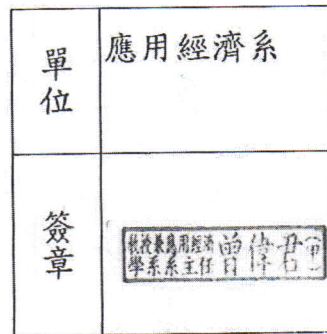 單位
應用經濟系
簽章
教授兼應用經濟
學系系主任
曾偉君